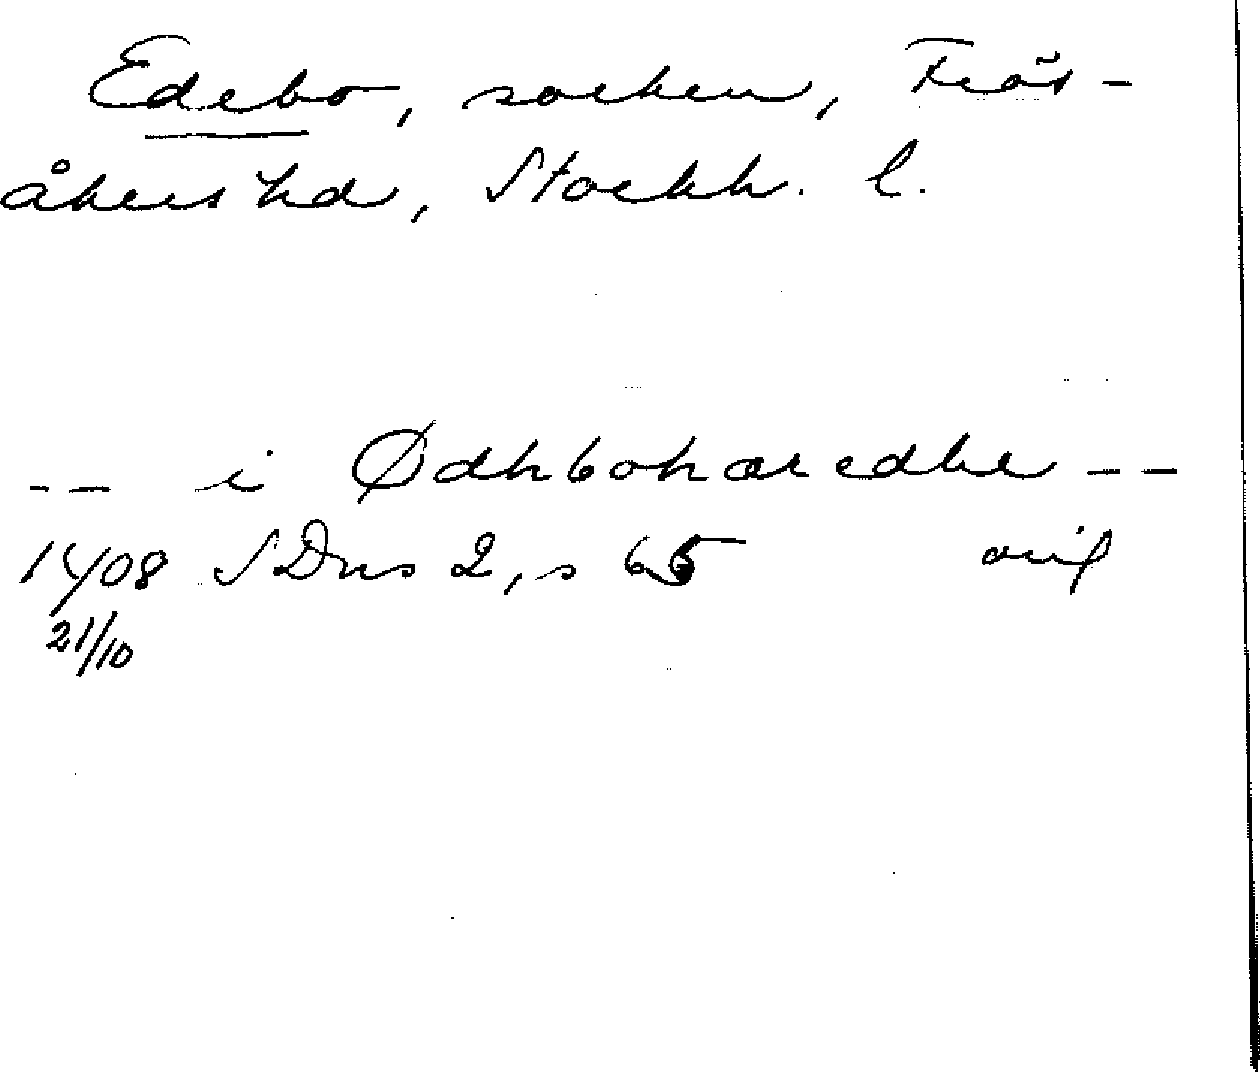 Edebo, socken, Frös-
åkers hd, Stockh. l.
-- i Ødhbohæredhe --
1408 SDns 2, s 65 orig
21/10